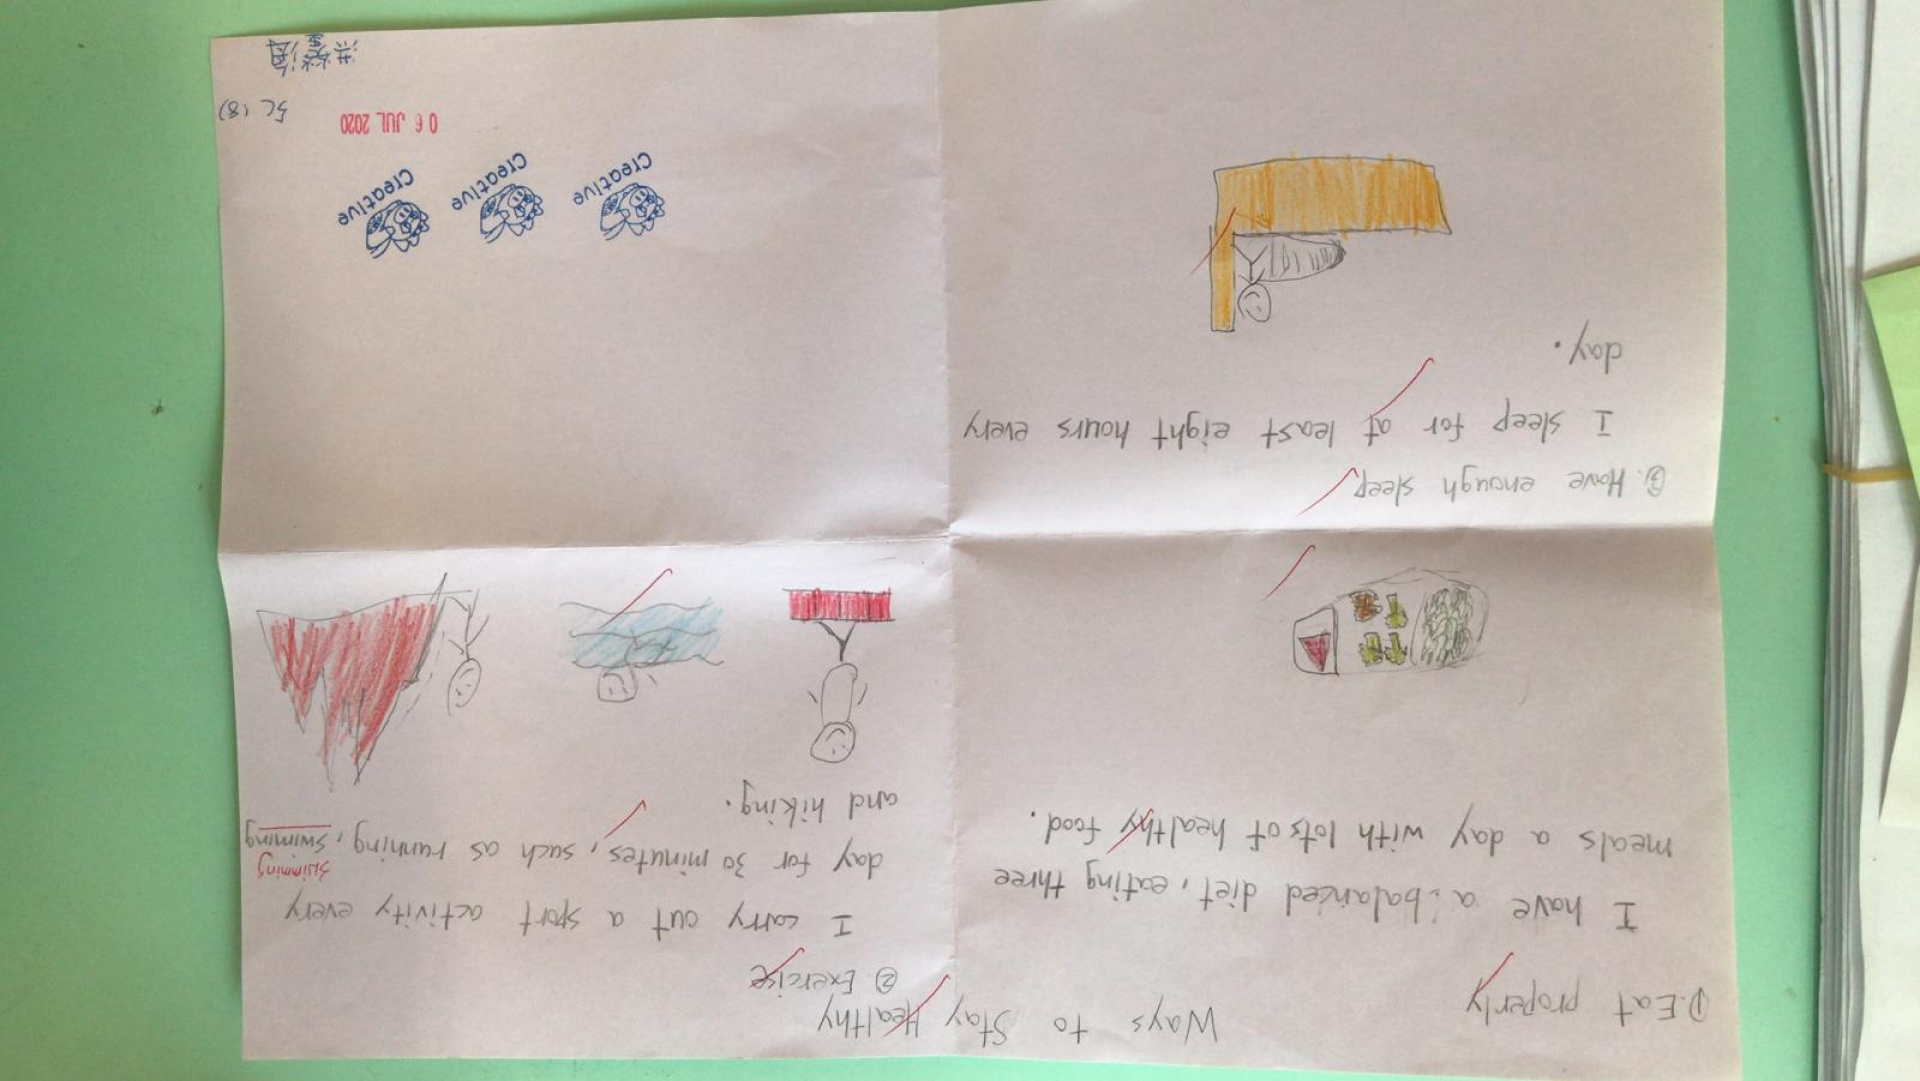 Ways to Stay Healthy
①.Eat properly
I have a balanced diet, eating three
meals a day with lots of healthy food.
② Exercise
I carry out a sport activity every
swimming
day for 30 minutes, such as running, swimming
and hiking.
③. Have enough sleep
I sleep for at least eight hours every
day.
creative
creative
creative
06 JUL 2020
5C (8)
洪